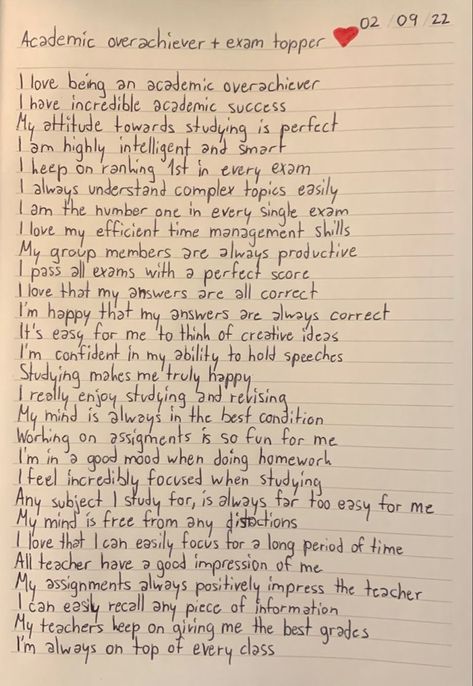 02/09/22
Academic overachiever + exam topper ❤
I love being an academic overachiever
I have incredible academic success
My attitude towards studying is perfect
I am highly intelligent and smart
I keep on ranking 1st in every exam
I always understand complex topics easily
I am the number one in every single exam
I love my efficient time management skills
My group members are always productive
I pass all exams with a perfect score
I love that my answers are all correct
I'm happy that my answers are always correct
It's easy for me to think of creative ideas
I'm confident in my ability to hold speeches
Studying makes me truly happy
I really enjoy studying and revising
My mind is always in the best condition
Working on assigments is so fun for me
I'm in a good mood when doing homework
I feel incredibly focused when studying
Any subject I study for, is always far too easy for me
My mind is free from any distactions
I love that I can easily focus for a long period of time
All teacher have a good impression of me
My assignments always positively impress the teacher
I can easily recall any piece of information
My teachers keep on giving me the best grades
I'm always on top of every class